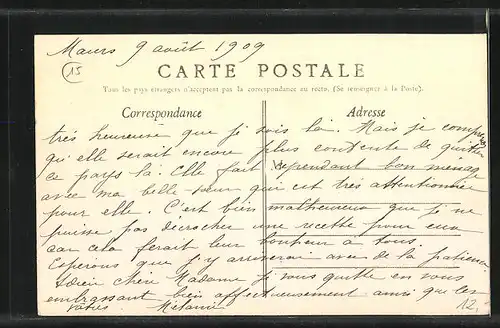 Maurs 9 août 1909
15
CARTE POSTALE
Tous les pays étrangers n'acceptent pas la correspondance au recto. (Se renseigner à la Poste).
Correspondance
Adresse
très heureuse que je sois là. Mais je comprends
qu'elle serait encore plus contente de quitter
ce pays là. Elle fait cependant bon ménage
avec ma belle-sœur qui est très attentionnée
pour elle. C'est bien malheureux que je ne
puisse pas décrocher une recette pour eux
car cela ferait leur bonheur à tous.
Espérons que j'y arriverai avec de la patience
Adieu chère Madame je vous quitte en vous
embrassant bien affectueusement ainsi que les
vôtres. Mélanie
12.